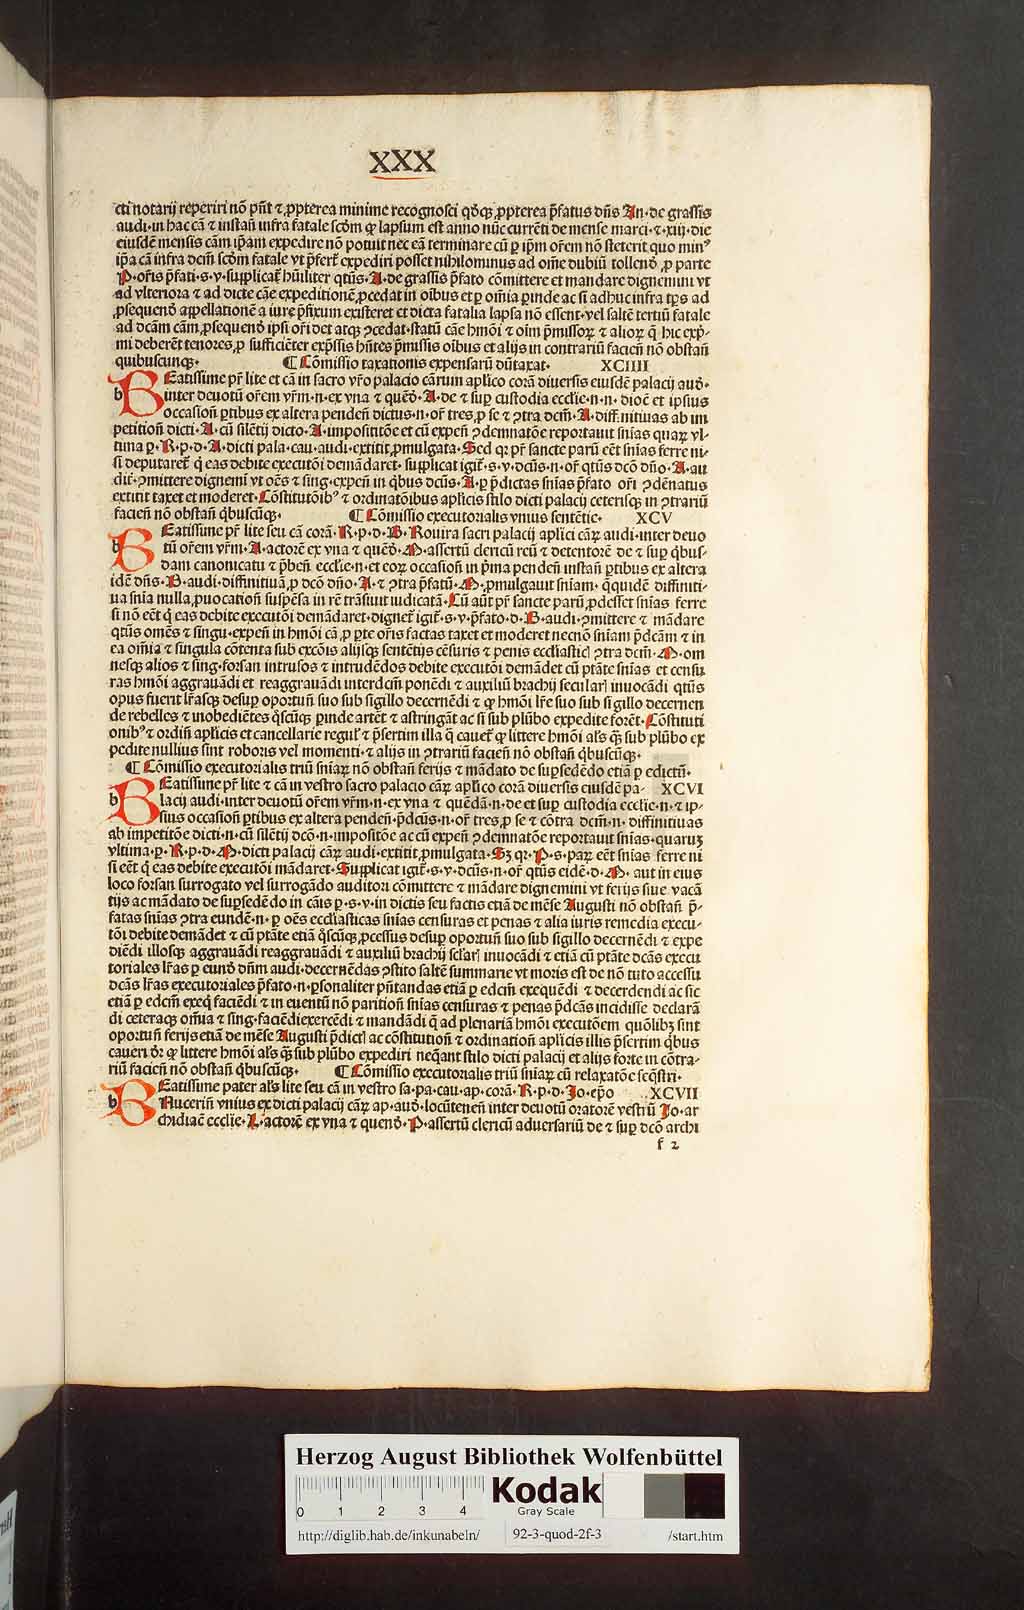 XXX
cti notarij reperiri nõ pñt ⁊ ꝓpterea minime recognosci qđqꝫ ꝓpterea p̃fatus dñs An· de grassis
audi· in hac cã ⁊ instañ infra fatale scđm qđ lapsum est anno nũc currẽti de mense marci· ⁊ ·xiij· die
eiusdẽ mensis cãm ip̃am expedire nõ potuit nec eã terminare cũ ꝑ ip̃m oȓem nõ steterit quo minꝰ
ip̃a cã infra dcm̃ scđm fatale vt p̃ferť expediri posset nihilominus ad om̃e dubiũ tollenđ ꝓ parte
P· oȓis p̃fati· s· v· supplicať hũiliter qtũs· A· de grassis p̃fato cõmittere et mandare dignemini vt
ad vlteriora ⁊ ad dicte cãe expeditionẽ ꝓcedat in oĩbus et ꝑ om̃ia ꝑinde ac si adhuc infra tp̃s ad
ꝓsequenđ appellationẽ a iure p̃fixum existeret et dicta fatalia lapsa nõ essent· vel saltẽ tertiũ fatale
ad dcãm cãm ꝓsequenđ ipsi oȓi det atqꝫ ↄcedat· statũ cãe hmõi ⁊ oĩm p̃missoꝝ ⁊ alioꝝ q̃ hic exp̃-
mi deberẽt tenores ꝓ sufficiẽter exp̃ssis hñtes p̃missis oĩbus et alijs in contrariũ facieñ nõ obstañ
quibuscunqꝫ· ¶ Cõmissio taxationis expensarũ dũtaxat· XCIIII
b BEatissime pȓ lite et cã in sacro vȓo palacio cãrum aplico corã diuersis eiusdẽ palacij auđ·
inter deuotũ oȓem vȓm· n· ex vna ⁊ quẽđ· A· de ⁊ suꝑ custodia ecclie· n· n· dioc̃ et ipsius
occasioñ ꝑtibus ex altera pendeñ dictus· n· oȓ tres ꝓ se ⁊ ↄtra dcm̃· A· diffinitiuas ab im
petitioñ dicti· A· cũ silẽtij dicto· A· impositiõe et cũ expeñ ↄdemnatõe reportauit sñias quaꝝ vl-
tima ꝑ· R· p· d· A· dicti pala· cau· audi· extitit ꝓmulgata· Sed qꝛ pȓ sancte parũ eẽt sñias ferre ni-
si deputareť q̃ eas debite executõi demãdaret· supplicat igiť· s· v· dcũs· n· oȓ qtũs dcõ dño· A· au
diť· ↄmittere dignemĩ vt oẽs ⁊ sing· expeñ in q̃bus dcũs· A· ꝑ p̃dictas sñias p̃fato oȓi ↄdẽnatus
extitit taxet et moderet· Cõstitutõibꝰ ⁊ ordinatõibus aplicis stilo dicti palacij ceterisqꝫ in ↄtrariũ
facieñ nõ obstañ q̃buscũqꝫ· ¶ Cõmissio executorialis vnius sentẽtie· XCV
b BEatissime pȓ lite seu cã corã· R· p· d· B· Rouira sacri palacij aplici cãꝝ audi· inter deuo
tũ oȓem vȓm· A· actorẽ ex vna ⁊ quẽđ· M· assertũ clericũ reũ ⁊ detentorẽ de ⁊ suꝑ q̃bus-
dam canonicatu ⁊ p̃beñ ecclie· n· et eoꝝ occasioñ in p̃ma pendeñ instañ ꝑtibus ex altera
idẽ dñs· B· audi· diffinitiuã ꝓ dcõ dño· A· ⁊ ↄtra p̃fatũ· M· ꝓmulgauit sñiam· q̃quidẽ diffiniti-
ua sñia nulla ꝓuocatioñ suspẽsa in rẽ trãsiuit iudicatã· Cũ aũt pȓ sancte parũ ꝓdesset sñias ferre
si nõ eẽt q̃ eas debite executõi demãdaret· digneť igiť· s· v· p̃fato· d· B· audi· ↄmittere ⁊ mãdare
qtũs omẽs ⁊ singu· expeñ in hmõi cã ꝓ ꝑte oȓis factas taxet et moderet necnõ sñiam p̃dcãm ⁊ in
ea om̃ia ⁊ singula cõtenta sub excõis alijsqꝫ sentẽtijs cẽsuris ⁊ penis ecclĩasticꝭ ↄtra dcm̃· M· om
nesqꝫ alios ⁊ sing· forsan intrusos ⁊ intrudẽdos debite executõi demãdet cũ ptãte sñias et censu
ras hmõi aggrauãdi et reaggrauãdi interdcm̃ ponẽdi ⁊ auxiliũ brachij secularꝭ inuocãdi qtũs
opus fuerit lȓasqꝫ desuꝑ oportuñ suo sub sigillo decernẽdi ⁊ qđ hmõi lȓe suo sub sigillo decernen
de rebelles ⁊ inobediẽtes q̃scũqꝫ ꝑinde artẽt ⁊ astringãt ac si sub plũbo expedite forẽt· Cõstituti
onibꝰ ⁊ ordiñ aplicis et cancellarie reguľ ⁊ p̃sertim illa q̃ caueť qđ littere hmõi als̃ qꝫ sub plũbo ex
pedite nullius sint roboris vel momenti· ⁊ alijs in ↄtrariũ facieñ nõ obstañ q̃buscũqꝫ·
¶ Cõmissio executorialis triũ sñiaꝝ nõ obstañ ferijs ⁊ mãdato de suꝑsedẽdo etiã ꝑ edictũ·
b BEatissime pȓ lite ⁊ cã in vestro sacro palacio cãꝝ aplico corã diuersis eiusdẽ pa- XCVI
lacij audi· inter deuotũ oȓem vȓm· n· ex vna ⁊ quẽdã· n· de et suꝑ custodia ecclie· n· ⁊ ip-
sius occasioñ ꝑtibus ex altera pendeñ· p̃dcũs· n· oȓ tres ꝓ se ⁊ cõtra dcm̃· n· diffinitiuas
ab impetitõe dicti· n· cũ silẽtij dcõ· n· impositõe ac cũ expeñ ↄdemnatõe reportauit sñias· quarũ
vltima· ꝑ· R· p· d· M· dicti palacij cãꝝ audi· extitit ꝓmulgata· Sꝫ qꝛ· P· s· paꝝ eẽt sñias ferre ni
si eẽt q̃ eas debite executõi mãdaret· Supplicat igiť· s· v· dcũs· n· oȓ qtũs eidẽ· d· M· aut in eius
loco forsan surrogato vel surrogãdo auditori cõmittere ⁊ mãdare dignemini vt ferijs siue vacã
tijs ac mãdato de suꝑsedẽdo in cãis ꝑ· s· v· in dictis seu factis etiã de mẽse Augusti nõ obstañ p̃-
fatas sñias ↄtra eundẽ· n· ꝑ oẽs ecclĩasticas sñias censuras et penas ⁊ alia iuris remedia execu-
tõi debite demãdet ⁊ cũ ptãte etiã q̃scũqꝫ ꝓcessus desuꝑ oportuñ suo sub sigillo decernẽdi ⁊ expe
diẽdi illosqꝫ aggrauãdi reaggrauãdi ⁊ auxiliũ brachij seľarꝭ inuocãdi ⁊ etiã cũ ptãte dcãs execu
toriales lȓas ꝑ eunđ dñm audi· decernẽdas ↄstito saltẽ summarie vt moris est de nõ tuto accessu
dcãs lȓas executoriales p̃fato· n· ꝑsonaliter pñtandas etiã ꝑ edcm̃ exequẽdi ⁊ decerdendi ac sic
etiã ꝑ edcm̃ exeq̃ faciẽdi ⁊ in euentũ nõ paritioñ sñias censuras ⁊ penas p̃dcãs incidisse declarã
di ceteraqꝫ om̃ia ⁊ sing· faciẽdi exercẽdi ⁊ mandãdi q̃ ad plenariã hmõi executõem quõlibꝫ sint
oportuñ ferijs etiã de mẽse Augusti p̃dictꝭ ac cõstitutioñ ⁊ ordinatioñ aplicis illis p̃sertim q̃bus
caueri đr qđ littere hmõi als̃ qꝫ sub plũbo expediri neq̃ant stilo dicti palacij et alijs forte in cõtra-
riũ facieñ nõ obstañ q̃buscũqꝫ· ¶ Cõmissio executorialis triũ sñiaꝝ cũ relaxatõe seq̃stri·
b BEatissime pater als̃ lite seu cã in vestro sa· pa· cau· ap· corã· R· p· d· Jo· ep̃o XCVII
Nuceriñ vnius ex dicti palacij cãꝝ ap· auđ· locũteneñ inter deuotũ oratorẽ vestrũ Jo· ar
chidiac̃ ecclie· L· actorẽ ex vna ⁊ quenđ· P· assertũ clericũ aduersariũ de ⁊ suꝑ dcõ archi
f 2
Herzog August Bibliothek Wolfenbüttel
0 1 2 3 4
Kodak
Gray Scale
http://diglib.hab.de/inkunabeln/ 92-3-quod-2f-3 /start.htm